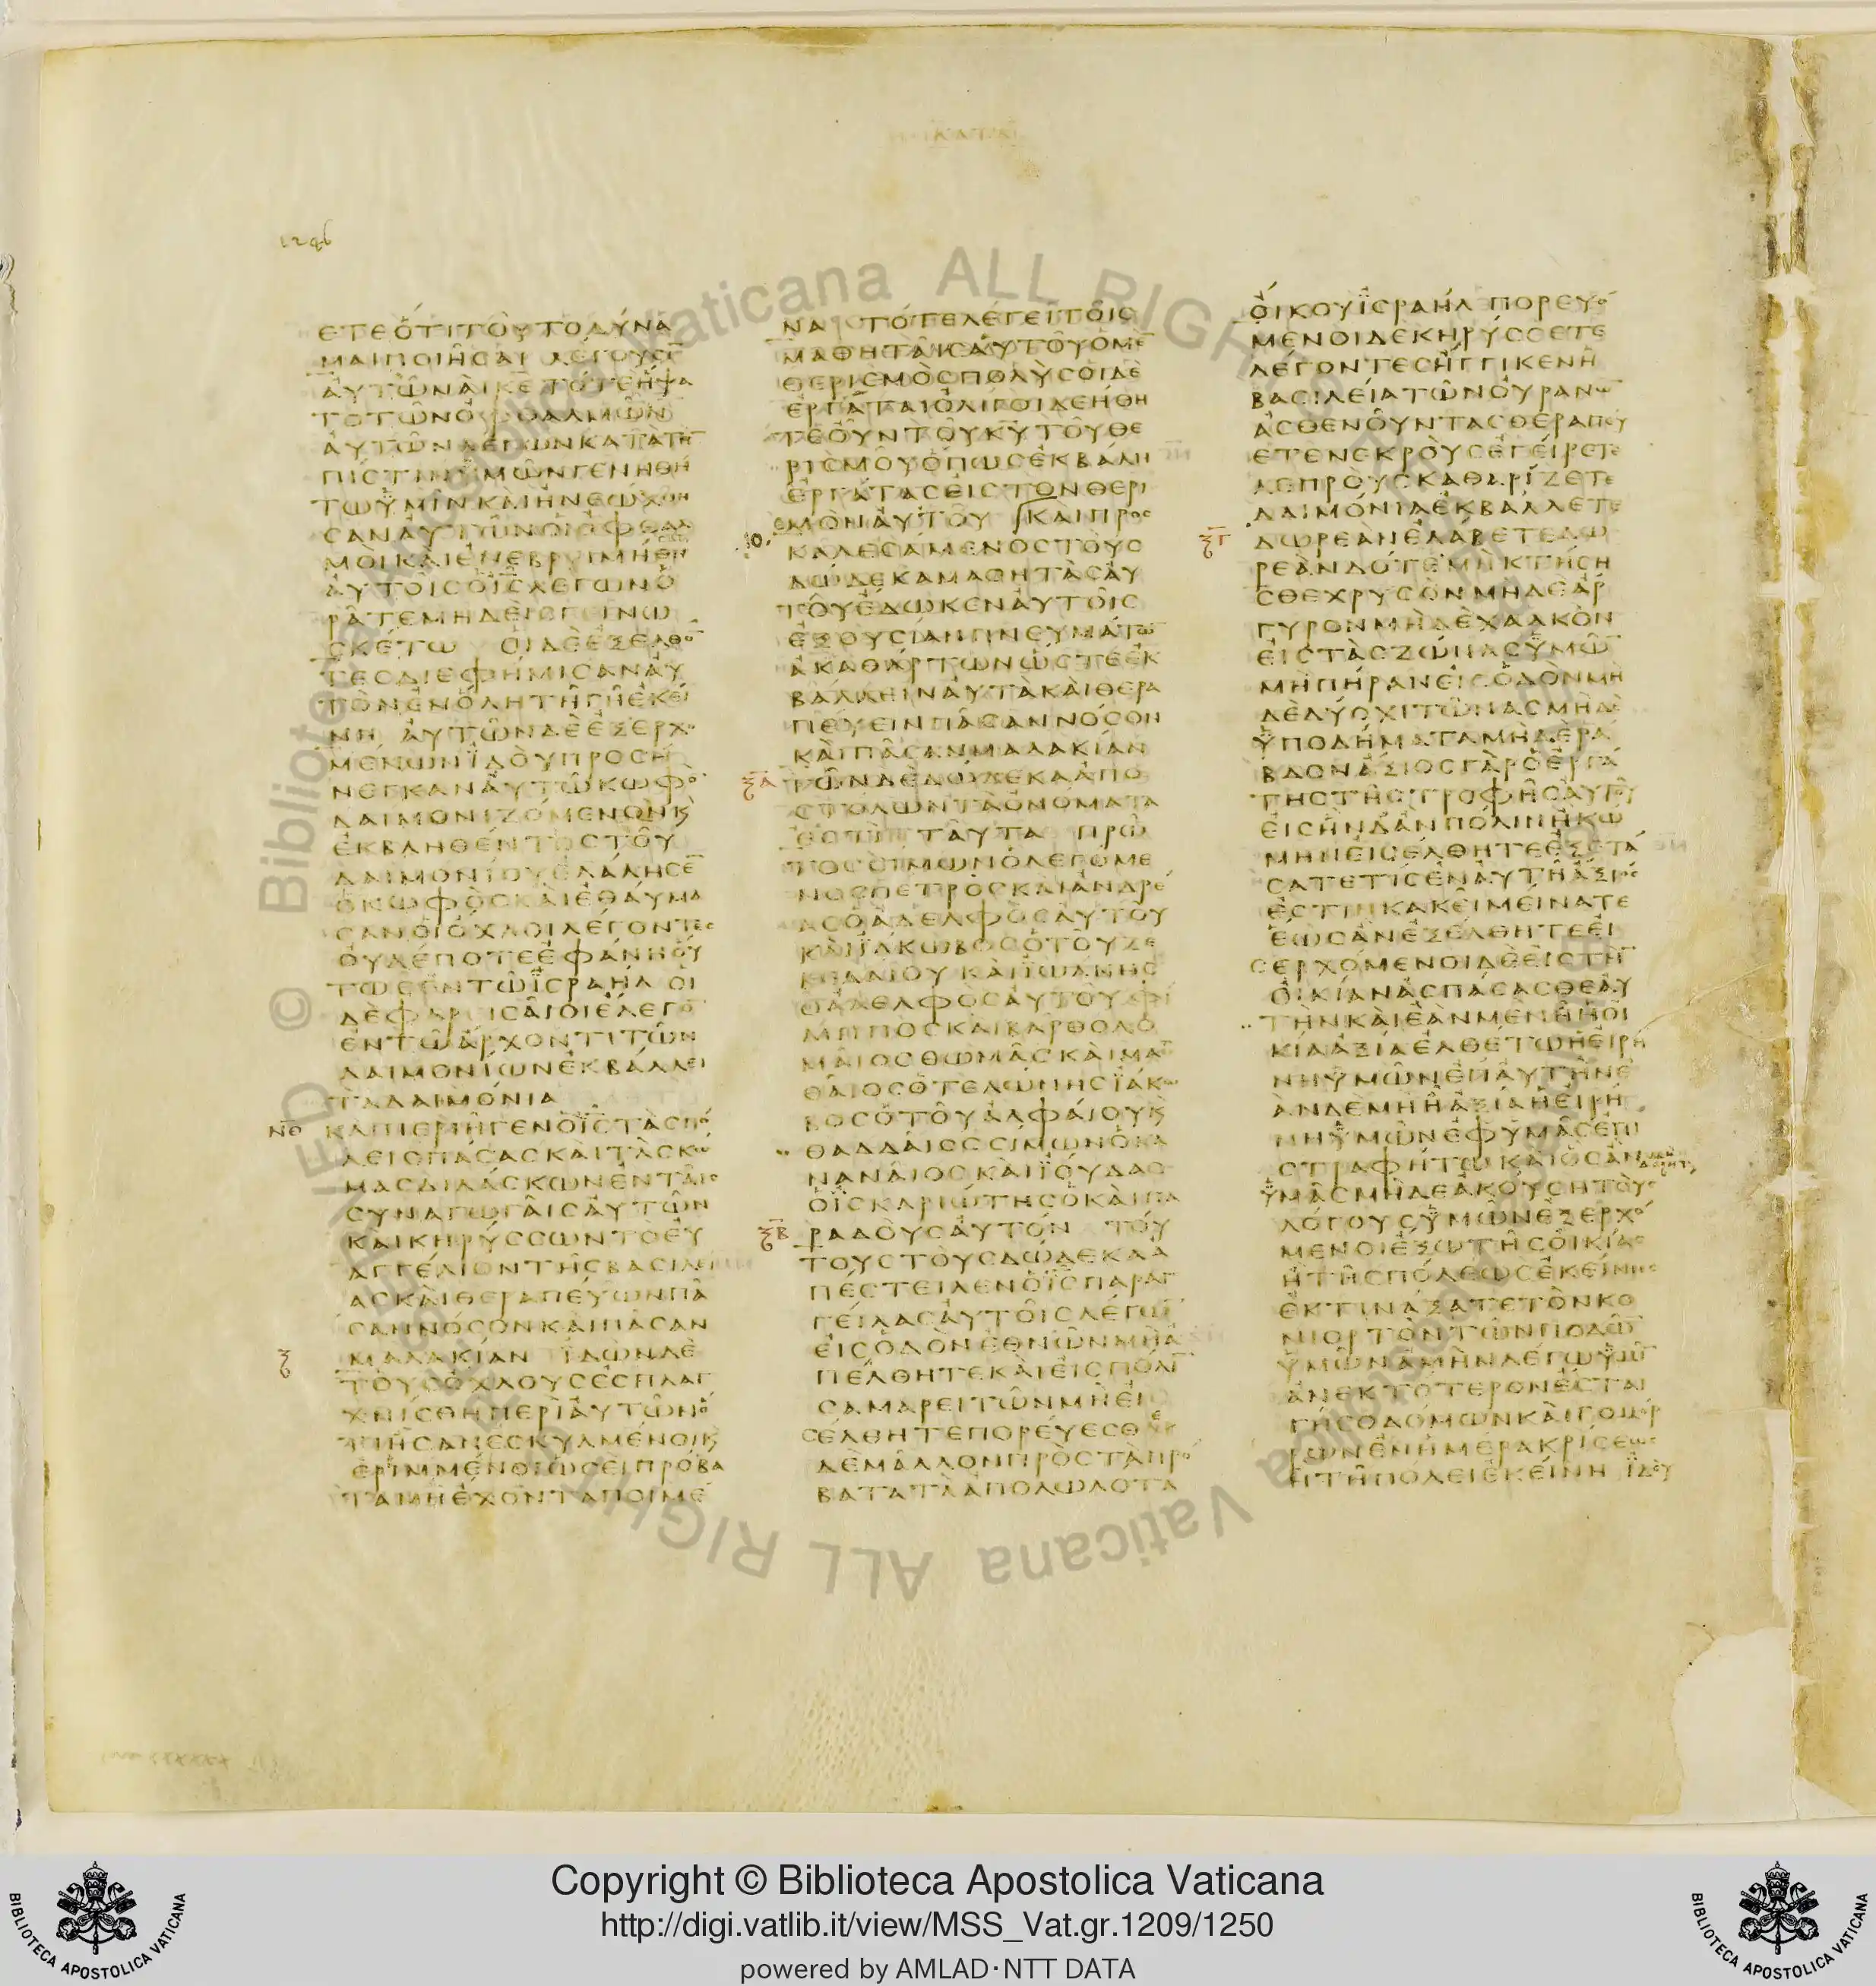 ΚΑΤΑ
1246
ΕΤΕΟΤΙΤΟΥΤΟΔΥΝΑ
ΜΑΙΠΟΙΗΣΑΙ ΛΕΓΟΥΣΙ̅
ΑΥΤΩΝΑΙΚΕ̅ ΤΟΤΕΗΨΑ
ΤΟΤΩΝΟΦΘΑΛΜΩΝ
ΑΥΤΩΝΛΕΓΩΝΚΑΤΑΤΗ̅
ΠΙΣΤΙΝΥΜΩΝΓΕΝΗΘΗ
ΤΩΥΜΙΝΚΑΙΗΝΕΩΧΘΗ
ΣΑΝΑΥΤΩΝΟΙΟΦΘΑΛ
ΜΟΙΚΑΙΕΝΕΒΡΙΜΗΘΗ
ΑΥΤΟΙΣΟΙ̅Σ̅ΛΕΓΩΝΟ
ΡΑΤΕΜΗΔΕΙΣΓΙΝΩ
ΣΚΕΤΩ ΟΙΔΕΕΞΕΛΘΟ̅
ΤΕΣΔΙΕΦΗΜΙΣΑΝΑΥ
ΤΟΝΕΝΟΛΗΤΗΓΗΕΚΕΙ
ΝΗ ΑΥΤΩΝΔΕΕΞΕΡΧΟ
ΜΕΝΩΝΪΔΟΥΠΡΟΣΗ
ΝΕΓΚΑΝΑΥΤΩΚΩΦΟ̅
ΔΑΙΜΟΝΙΖΟΜΕΝΟΝΚ
ΕΚΒΛΗΘΕΝΤΟΣΤΟΥ
ΔΑΙΜΟΝΙΟΥΕΛΑΛΗΣΕ̅
ΟΚΩΦΟΣΚΑΙΕΘΑΥΜΑ
ΣΑΝΟΙΟΧΛΟΙΛΕΓΟΝΤΕΣ
ΟΥΔΕΠΟΤΕΕΦΑΝΗΟΥ
ΤΩΣΕΝΤΩΪΣΡΑΗΛ ΟΙ
ΔΕΦΑΡΙΣΑΙΟΙΕΛΕΓΟ̅
ΕΝΤΩΑΡΧΟΝΤΙΤΩΝ
ΔΑΙΜΟΝΙΩΝΕΚΒΑΛΛΕΙ
ΤΑΔΑΙΜΟΝΙΑ
ΝΘ ΚΑΙΠΕΡΙΗΓΕΝΟΙ̅Σ̅ΤΑΣΠΟ
ΛΕΙΣΠΑΣΑΣΚΑΙΤΑΣΚΩ
ΜΑΣΔΙΔΑΣΚΩΝΕΝΤΑΙΣ
ΣΥΝΑΓΩΓΑΙΣΑΥΤΩΝ
ΚΑΙΚΗΡΥΣΣΩΝΤΟΕΥ
ΑΓΓΕΛΙΟΝΤΗΣΒΑΣΙΛΕΙ
ΑΣΚΑΙΘΕΡΑΠΕΥΩΝΠΑ
ΣΑΝΝΟΣΟΝΚΑΙΠΑΣΑΝ
Ξ ΜΑΛΑΚΙΑΝ ΪΔΩΝΔΕ
ΤΟΥΣΟΧΛΟΥΣΕΣΠΛΑΓ
ΧΝΙΣΘΗΠΕΡΙΑΥΤΩΝΟ
ΤΙΗΣΑΝΕΣΚΥΛΜΕΝΟΙΚ
ΕΡΙΜΜΕΝΟΙΩΣΕΙΠΡΟΒΑ
ΤΑΜΗΕΧΟΝΤΑΠΟΙΜΕ
ΝΑ ΤΟΤΕΛΕΓΕΙΤΟΙΣ
ΜΑΘΗΤΑΙΣΑΥΤΟΥΟΜΕ̅
ΘΕΡΙΣΜΟΣΠΟΛΥΣΟΙΔΕ
ΕΡΓΑΤΑΙΟΛΙΓΟΙΔΕΗΘΗ
ΤΕΟΥΝΤΟΥΚ̅Υ̅ΤΟΥΘΕ
ΡΙΣΜΟΥΟΠΩΣΕΚΒΑΛΗ
ΕΡΓΑΤΑΣΕΙΣΤΟΝΘΕΡΙ
ΣΜΟΝΑΥΤΟΥ ΚΑΙΠΡΟΣ
Ι ΚΑΛΕΣΑΜΕΝΟΣΤΟΥΣ
ΔΩΔΕΚΑΜΑΘΗΤΑΣΑΥ
ΤΟΥΕΔΩΚΕΝΑΥΤΟΙΣ
ΕΞΟΥΣΙΑΝΠΝΕΥΜΑΤΩ̅
ΑΚΑΘΑΡΤΩΝΩΣΤΕΕΚ
ΒΑΛΛΕΙΝΑΥΤΑΚΑΙΘΕΡΑ
ΠΕΥΕΙΝΠΑΣΑΝΝΟΣΟΝ
ΚΑΙΠΑΣΑΝΜΑΛΑΚΙΑΝ
ΞΑ ΤΩΝΔΕΔΩΔΕΚΑΑΠΟ
ΣΤΟΛΩΝΤΑΟΝΟΜΑΤΑ
ΕΣΤΙΝ ΤΑΥΤΑ ΠΡΩ
ΤΟΣΣΙΜΩΝΟΛΕΓΟΜΕ
ΝΟΣΠΕΤΡΟΣΚΑΙΑΝΔΡΕ
ΑΣΟΑΔΕΛΦΟΣΑΥΤΟΥ
ΚΑΙΪΑΚΩΒΟΣΟΤΟΥΖΕ
ΒΕΔΑΙΟΥ ΚΑΙΪΩΑΝΗΣ
ΟΑΔΕΛΦΟΣΑΥΤΟΥΦΙ
ΛΙΠΠΟΣΚΑΙΒΑΡΘΟΛΟ
ΜΑΙΟΣΘΩΜΑΣΚΑΙΜΑΘ
ΘΑΙΟΣΟΤΕΛΩΝΗΣΪΑΚΩ
ΒΟΣΟΤΟΥΑΛΦΑΙΟΥΚ
ΘΑΔΔΑΙΟΣΣΙΜΩΝΟΚΑ
ΝΑΝΑΙΟΣΚΑΙΪΟΥΔΑΣ
ΟΪΣΚΑΡΙΩΤΗΣΟΚΑΙΠΑ
ΞΒ ΡΑΔΟΥΣΑΥΤΟΝ ΤΟΥ
ΤΟΥΣΤΟΥΣΔΩΔΕΚΑΑ
ΠΕΣΤΕΙΛΕΝΟΙ̅Σ̅ΠΑΡΑΓ
ΓΕΙΛΑΣΑΥΤΟΙΣΛΕΓΩ̅
ΕΙΣΟΔΟΝΕΘΝΩΝΜΗΑ
ΠΕΛΘΗΤΕΚΑΙΕΙΣΠΟΛΙ̅
ΣΑΜΑΡΕΙΤΩΝΜΗΕΙ
ΣΕΛΘΗΤΕΠΟΡΕΥΕΣΘΕ
ΔΕΜΑΛΛΟΝΠΡΟΣΤΑΠΡΟ
ΒΑΤΑΤΑΑΠΟΛΩΛΟΤΑ
ΟΙΚΟΥΪΣΡΑΗΛ ΠΟΡΕΥΟ
ΜΕΝΟΙΔΕΚΗΡΥΣΣΕΤΕ
ΛΕΓΟΝΤΕΣΗΓΓΙΚΕΝΗ
ΒΑΣΙΛΕΙΑΤΩΝΟΥΡΑΝΩ̅
ΑΣΘΕΝΟΥΝΤΑΣΘΕΡΑΠΕΥ
ΕΤΕΝΕΚΡΟΥΣΕΓΕΙΡΕΤΕ
ΛΕΠΡΟΥΣΚΑΘΑΡΙΖΕΤΕ
ΔΑΙΜΟΝΙΑΕΚΒΑΛΛΕΤΕ
ΞΓ ΔΩΡΕΑΝΕΛΑΒΕΤΕΔΩ
ΡΕΑΝΔΟΤΕΜΗΚΤΗΣΗ
ΣΘΕΧΡΥΣΟΝΜΗΔΕΑΡ
ΓΥΡΟΝΜΗΔΕΧΑΛΚΟΝ
ΕΙΣΤΑΣΖΩΝΑΣΥΜΩ̅
ΜΗΠΗΡΑΝΕΙΣΟΔΟΝΜΗ
ΔΕΔΥΟΧΙΤΩΝΑΣΜΗΔΕ
ΥΠΟΔΗΜΑΤΑΜΗΔΕΡΑ
ΒΔΟΝΑΞΙΟΣΓΑΡΟΕΡΓΑ
ΤΗΣΤΗΣΤΡΟΦΗΣΑΥΤΟΥ
ΕΙΣΗΝΔΑΝΠΟΛΙΝΗΚΩ
ΜΗΝΕΙΣΕΛΘΗΤΕΕΞΕΤΑ
ΣΑΤΕΤΙΣΕΝΑΥΤΗΑΞΙΟΣ
ΕΣΤΙΝΚΑΚΕΙΜΕΙΝΑΤΕ
ΕΩΣΑΝΕΞΕΛΘΗΤΕΕΙ
ΣΕΡΧΟΜΕΝΟΙΔΕΕΙΣΤΗ̅
ΟΙΚΙΑΝΑΣΠΑΣΑΣΘΕΑΥ
ΤΗΝΚΑΙΕΑΝΜΕΝΗΗΟΙ
ΚΙΑΑΞΙΑΕΛΘΕΤΩΗΕΙΡΗ
ΝΗΥΜΩΝΕΠΑΥΤΗΝΕ
ΑΝΔΕΜΗΗΑΞΙΑΗΕΙΡΗ
ΝΗΥΜΩΝΕΦΥΜΑΣΕΠΙ
ΣΤΡΑΦΗΤΩΚΑΙΟΣΑΝ
ΥΜΑΣΜΗΔΕΑΚΟΥΣΗΤΟΥΣ
ΛΟΓΟΥΣΥΜΩΝΕΞΕΡΧΟ
ΜΕΝΟΙΕΞΩΤΗΣΟΙΚΙΑΣ
ΗΤΗΣΠΟΛΕΩΣΕΚΕΙΝΗΣ
ΕΚΤΙΝΑΞΑΤΕΤΟΝΚΟ
ΝΙΟΡΤΟΝΤΩΝΠΟΔΩ̅
ΥΜΩΝΑΜΗΝΛΕΓΩΥΜΙ̅
ΑΝΕΚΤΟΤΕΡΟΝΕΣΤΑΙ
ΓΗΣΟΔΟΜΩΝΚΑΙΓΟΜΟΡ
ΡΩΝΕΝΗΜΕΡΑΚΡΙΣΕΩΣ
ΗΤΗΠΟΛΕΙΕΚΕΙΝΗ ΪΔΟΥ
© Biblioteca Apostolica Vaticana ALL RIGHTS RESERVED
Copyright © Biblioteca Apostolica Vaticana
http://digi.vatlib.it/view/MSS_Vat.gr.1209/1250
powered by AMLAD·NTT DATA
BIBLIOTECA APOSTOLICA VATICANA
BIBLIOTECA APOSTOLICA VATICANA